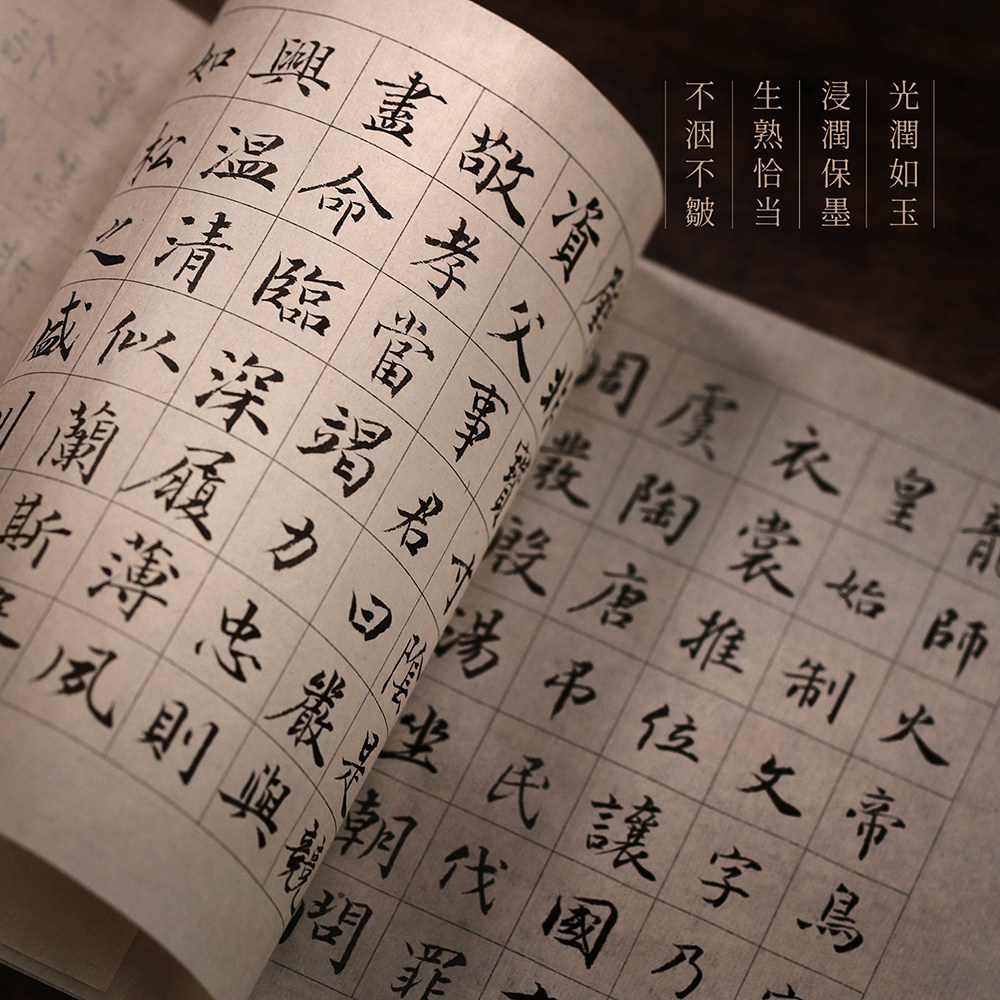 光潤如玉
浸潤保墨
生熟恰当
不洇不皺
龍師火帝鳥
皇始制文字乃
衣裳推位讓國
虞陶唐吊民伐罪
周發殷湯坐朝問
非寶寸陰是競
資父事君曰嚴與
敬孝當竭力忠則
盡命臨深履薄夙
興温清似蘭斯
如松之盛川